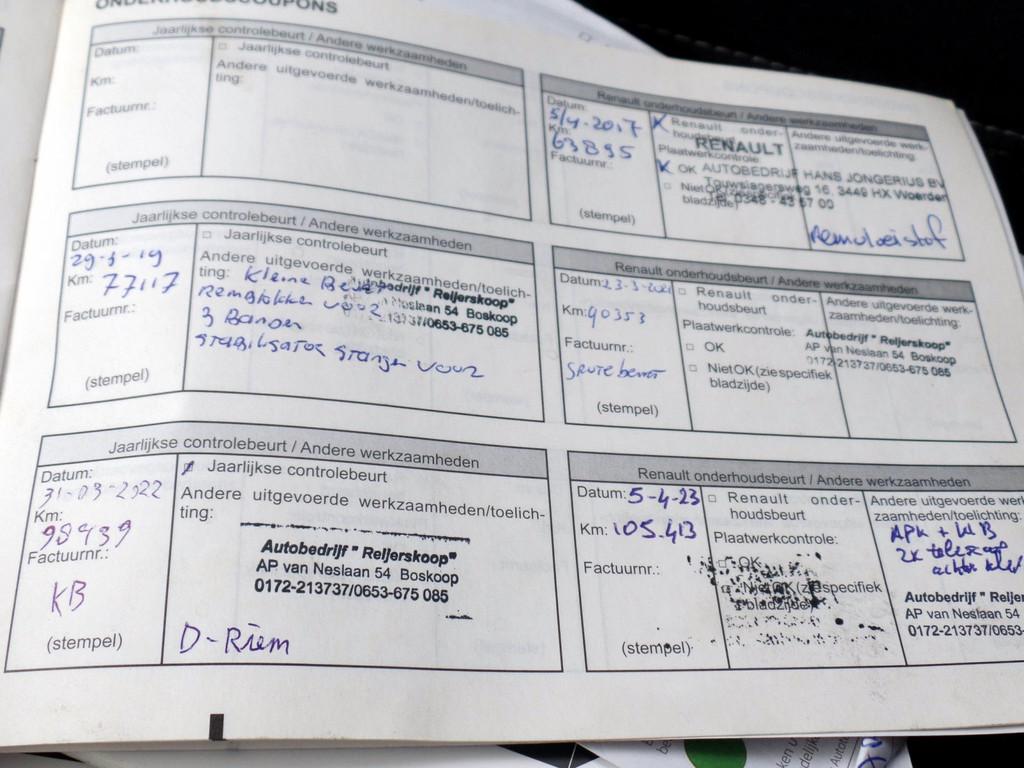 ONDERHOUDSCOUPONS
Jaarlijkse controlebeurt / Andere werkzaamheden
Datum:
Km:
Factuurnr.:
(stempel)
□ Jaarlijkse controlebeurt
Andere uitgevoerde werkzaamheden/toelich-
ting:
Renault onderhoudsbeurt / Andere werkzaamheden
Datum:
5/4-2017
Km:
63895
Factuurnr.:
(stempel)
x Renault onder-
houdsbeurt
Plaatwerkcontrole:
x OK
□ Niet OK (zie specifiek
bladzijde)
Andere uitgevoerde werk-
zaamheden/toelichting:
RENAULT
AUTOBEDRIJF HANS JONGERIUS BV
Touwslagersweg 16, 3449 HX Woerden
Tel. 0348 - 43 57 00
Remvloeistof
Jaarlijkse controlebeurt / Andere werkzaamheden
Datum:
29-3-19
Km: 77117
Factuurnr.:
(stempel)
□ Jaarlijkse controlebeurt
Andere uitgevoerde werkzaamheden/toelich-
ting: Kleine Beurt
Remblokken voor
3 Banden
Stabilisator stangen voor
Autobedrijf " Reijerskoop"
AP van Neslaan 54 Boskoop
0172-213737/0653-675 085
Renault onderhoudsbeurt / Andere werkzaamheden
Datum: 23-3-2021
Km: 90353
Factuurnr.:
Grote beurt
(stempel)
□ Renault onder-
houdsbeurt
Plaatwerkcontrole:
□ OK
□ Niet OK (zie specifiek
bladzijde)
Andere uitgevoerde werk-
zaamheden/toelichting:
Autobedrijf " Reijerskoop"
AP van Neslaan 54 Boskoop
0172-213737/0653-675 085
Jaarlijkse controlebeurt / Andere werkzaamheden
Datum:
31-03-2022
Km:
98439
Factuurnr.:
KB
(stempel)
x Jaarlijkse controlebeurt
Andere uitgevoerde werkzaamheden/toelich-
ting:
Autobedrijf " Reijerskoop"
AP van Neslaan 54 Boskoop
0172-213737/0653-675 085
D-Riem
Renault onderhoudsbeurt / Andere werkzaamheden
Datum: 5-4-23
Km: 105.413
Factuurnr.:
(stempel)
□ Renault onder-
houdsbeurt
Plaatwerkcontrole:
□ OK
□ Niet OK (zie specifiek
bladzijde)
Andere uitgevoerde werk
zaamheden/toelichting:
APK + KB
2x
achter klep
Autobedrijf " Reij
AP van Neslaan 5
0172-213737/0653